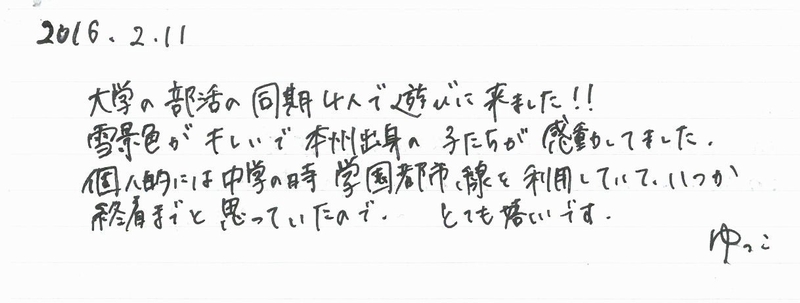 2016.2.11
大学の部活の同期4人で遊びに来ました!!
雪景色がキレいで本州出身の子たちが感動してました.
個人的には中学の時学園都市線を利用していて、いつか
終着までと思っていたので. とても嬉しいです.
ゆっこ